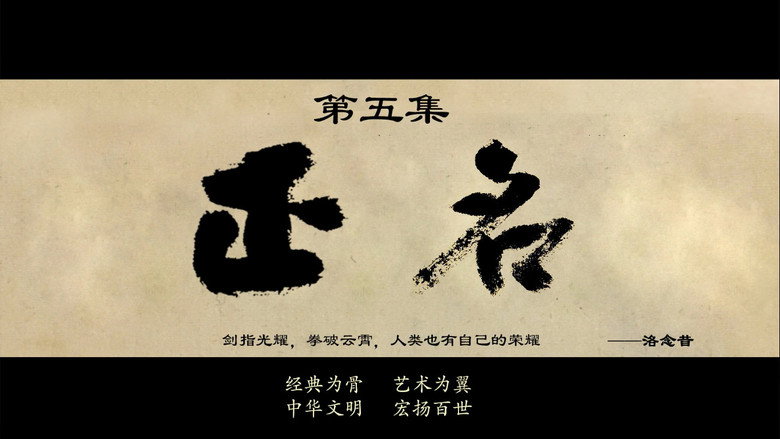 第五集
正名
剑指光耀，拳破云霄，人类也有自己的荣耀 ——洛念昔
经典为骨 艺术为翼
中华文明 宏扬百世